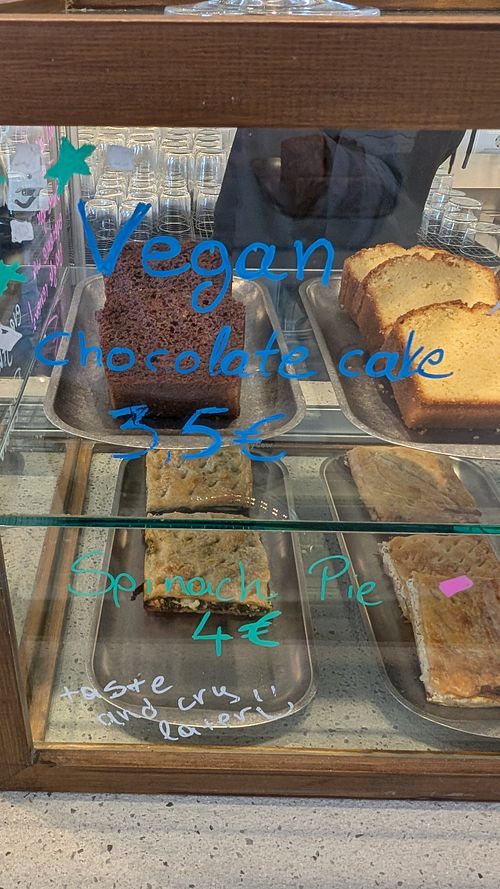 Vegan
Chocolate cake
3,5€
Spinach Pie
4€
taste
and cry
later